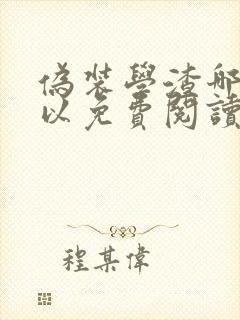 偽裝學渣哪
以免費閱讀
程某偉